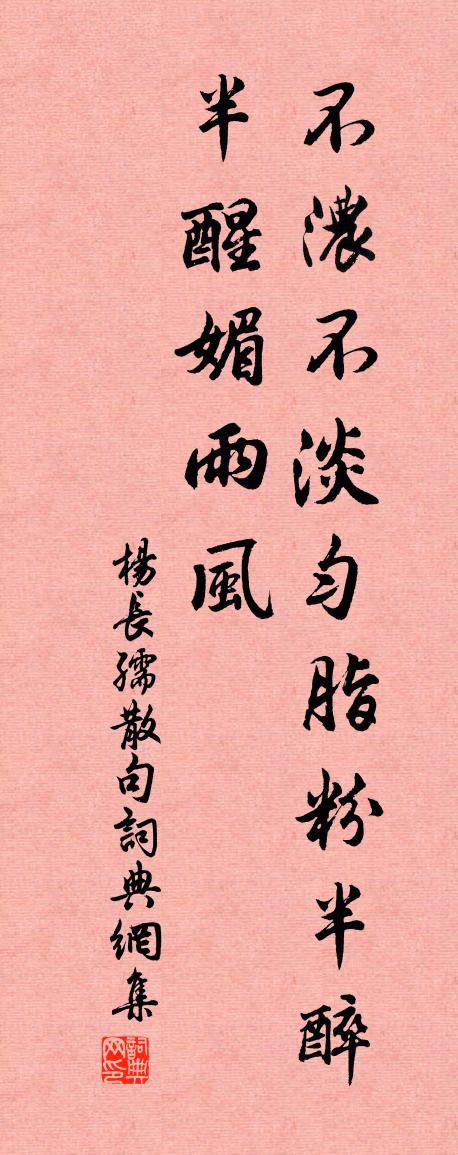 不濃不淡勻脂粉半醉
半醒媚雨風
楊長孺散句詞典網集
詞典网印